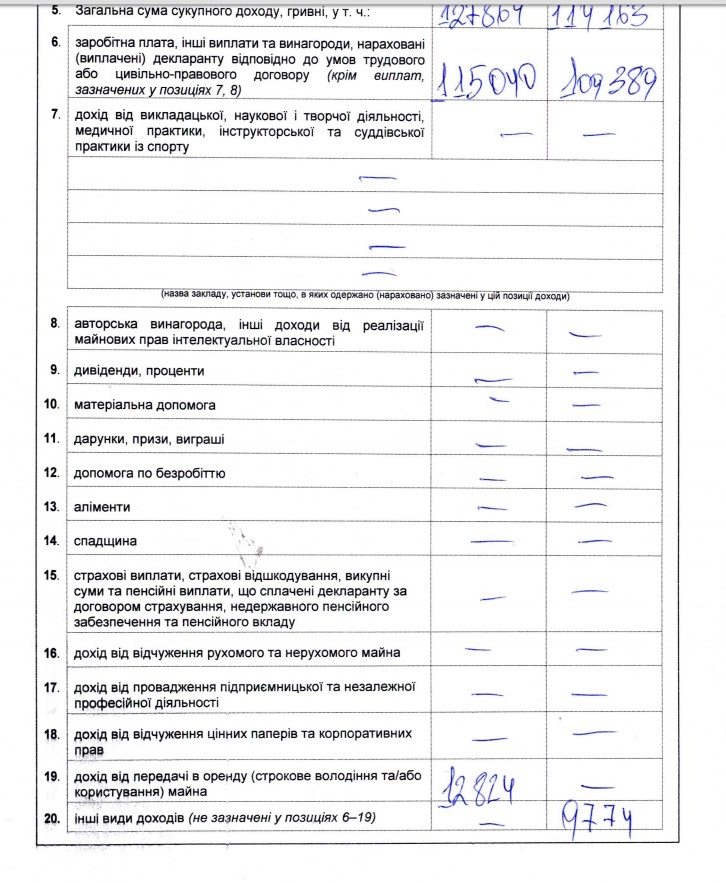 5. Загальна сума сукупного доходу, гривні, у т. ч.: 127864 119163
6. заробітна плата, інші виплати та винагороди, нараховані
(виплачені) декларанту відповідно до умов трудового
або цивільно-правового договору (крім виплат,
зазначених у позиціях 7, 8) 115040 109389
7. дохід від викладацької, наукової і творчої діяльності,
медичної практики, інструкторської та суддівської
практики із спорту — —
—
—
—
—
(назва закладу, установи тощо, в яких одержано (нараховано) зазначені у цій позиції доходи)
8. авторська винагорода, інші доходи від реалізації
майнових прав інтелектуальної власності — —
9. дивіденди, проценти — —
10. матеріальна допомога — —
11. дарунки, призи, виграші — —
12. допомога по безробіттю — —
13. аліменти — —
14. спадщина — —
15. страхові виплати, страхові відшкодування, викупні
суми та пенсійні виплати, що сплачені декларанту за
договором страхування, недержавного пенсійного
забезпечення та пенсійного вкладу — —
16. дохід від відчуження рухомого та нерухомого майна — —
17. дохід від провадження підприємницької та незалежної
професійної діяльності — —
18. дохід від відчуження цінних паперів та корпоративних
прав — —
19. дохід від передачі в оренду (строкове володіння та/або
користування) майна 12824 —
20. інші види доходів (не зазначені у позиціях 6–19) — 9774